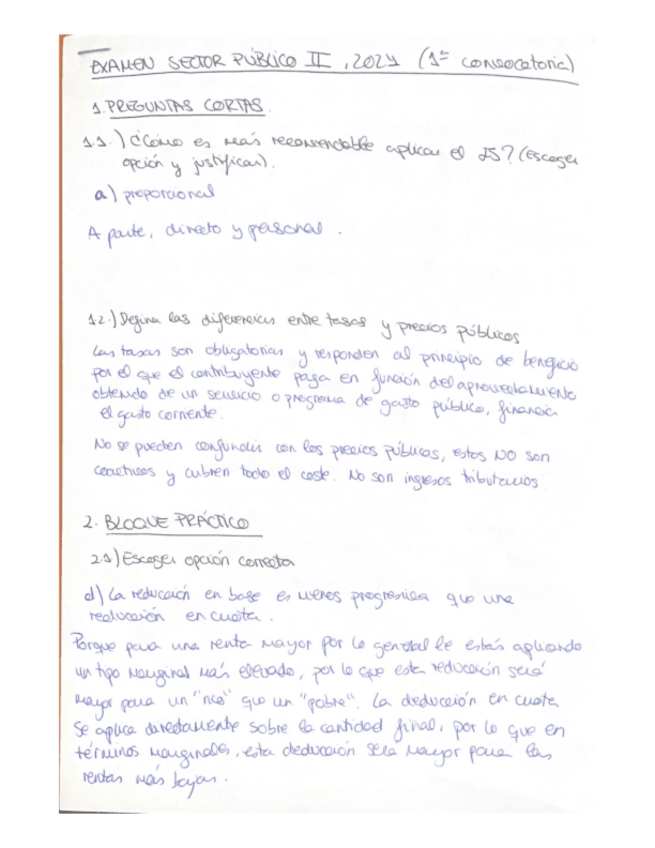 EXAMEN SECTOR PÚBLICO II, 2024 (1ª convocatoria)
1. PREGUNTAS CORTAS.
1.1.) ¿Cómo es más recomendable aplicar el IS? (Escoger
opción y justificar).
a) proporcional
A parte, directo y personal.
1.2.) Defina las diferencias entre tasas y precios públicos
Las tasas son obligatorias y responden al principio de beneficio
por el que el contribuyente paga en función del aprovechamiento
obtenido de un servicio o programa de gasto público, financia
el gasto corriente.
No se pueden confundir con los precios públicos, estos NO son
coactivos y cubren todo el coste. No son ingresos tributarios.
2. BLOQUE PRÁCTICO
2.1) Escoger opción correcta
d) La reducción en base es menos progresiva que una
reducción en cuota.
Porque para una renta mayor por lo general le estás aplicando
un tipo marginal más elevado, por lo que esta reducción será
mayor para un "rico" que un "pobre". La deducción en cuota
se aplica directamente sobre la cantidad final, por lo que en
términos marginales, esta deducción será mayor para las
rentas más bajas.